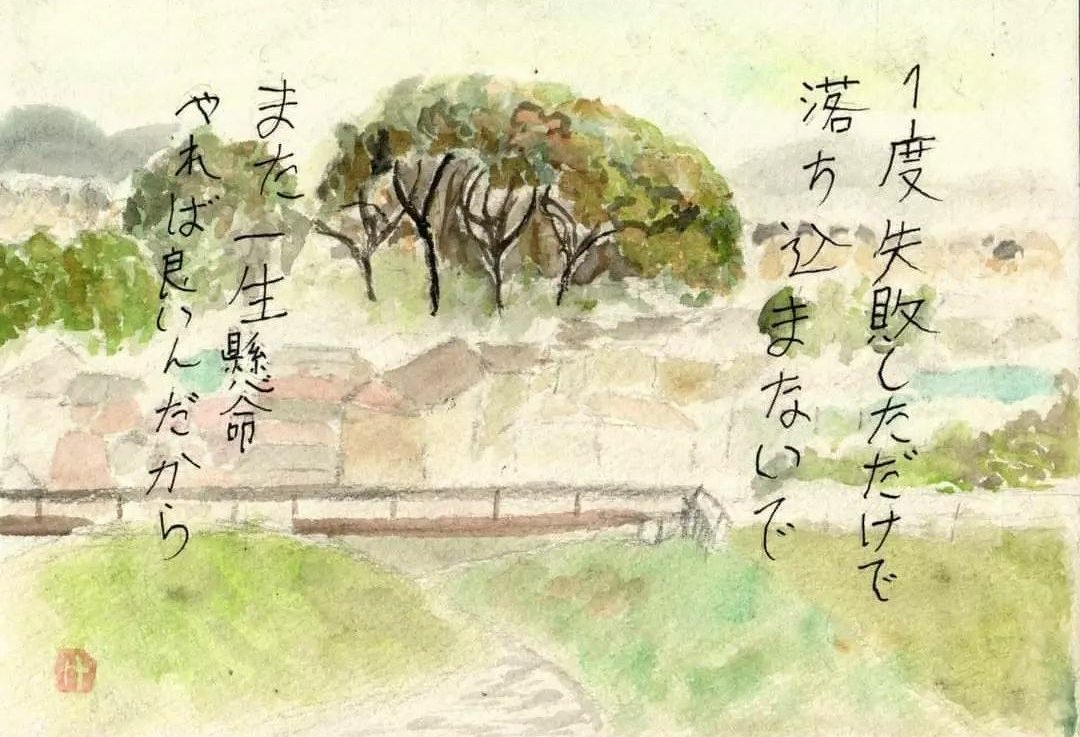 1度失敗しただけで
落ち込まないで
また一生懸命
やれば良いんだから